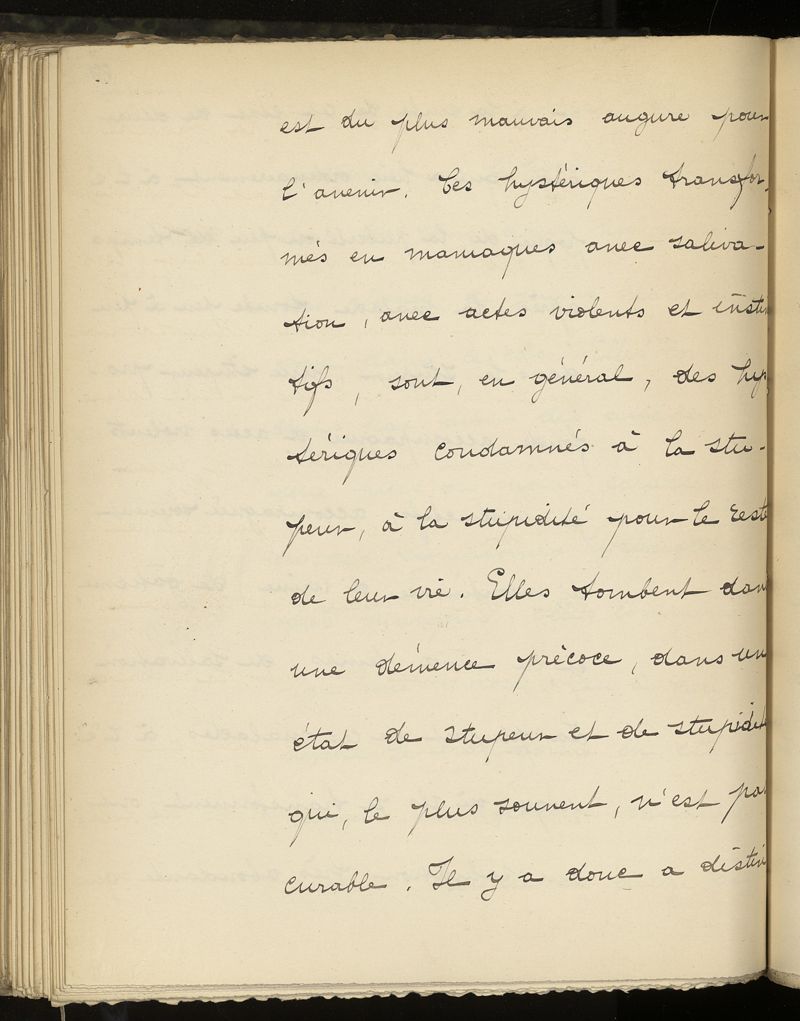 est du plus mauvais augure pour
l'avenir. Ces hystériques transfor-
més en maniaques avec saliva-
tion, avec actes violents et instin
tifs, sont, en général, des hys
tériques condamnés à la stu-
peur, à la stupidité pour le reste
de leur vie. Elles tombent dans
une démence précoce, dans un
état de stupeur et de stupidit
qui, le plus souvent, n'est pas
curable. Il y a donc a distin